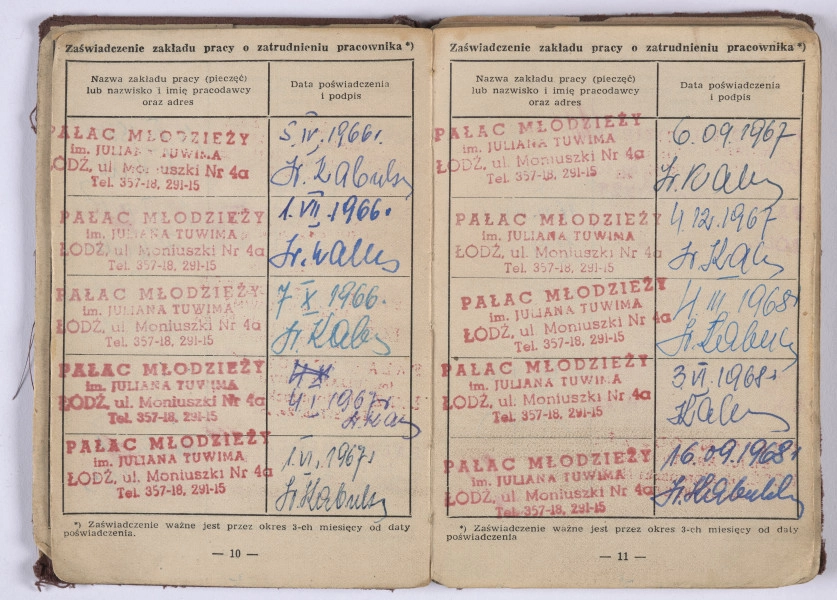 Zaświadczenie zakładu pracy o zatrudnieniu pracownika *)
Nazwa zakładu pracy (pieczęć)
lub nazwisko i imię pracodawcy
oraz adres
Data poświadczenia
i podpis
PAŁAC MŁODZIEŻY
im. JULIANA TUWIMA
ŁÓDŹ, ul. Moniuszki Nr 4a
Tel. 357-18, 291-15
5. IV. 1966 r.
PAŁAC MŁODZIEŻY
im. JULIANA TUWIMA
ŁÓDŹ, ul. Moniuszki Nr 4a
Tel. 357-18, 291-15
1. VII. 1966 r.
PAŁAC MŁODZIEŻY
im. JULIANA TUWIMA
ŁÓDŹ, ul. Moniuszki Nr 4a
Tel. 357-18, 291-15
7 X 1966.
PAŁAC MŁODZIEŻY
im. JULIANA TUWIMA
ŁÓDŹ, ul. Moniuszki Nr 4a
Tel. 357-18, 291-15
1967 r
PAŁAC MŁODZIEŻY
im. JULIANA TUWIMA
ŁÓDŹ, ul. Moniuszki Nr 4a
Tel. 357-18, 291-15
1. VI. 1967 r
*) Zaświadczenie ważne jest przez okres 3-ch miesięcy od daty
poświadczenia.
— 10 —
Zaświadczenie zakładu pracy o zatrudnieniu pracownika *)
Nazwa zakładu pracy (pieczęć)
lub nazwisko i imię pracodawcy
oraz adres
Data poświadczenia
i podpis
PAŁAC MŁODZIEŻY
im. JULIANA TUWIMA
ŁÓDŹ, ul. Moniuszki Nr 4a
Tel. 357-18, 291-15
6.09.1967
PAŁAC MŁODZIEŻY
im. JULIANA TUWIMA
ŁÓDŹ, ul. Moniuszki Nr 4a
Tel. 357-18, 291-15
4.12.1967
PAŁAC MŁODZIEŻY
im. JULIANA TUWIMA
ŁÓDŹ, ul. Moniuszki Nr 4a
Tel. 357-18, 291-15
4. III. 1968 r
PAŁAC MŁODZIEŻY
im. JULIANA TUWIMA
ŁÓDŹ, ul. Moniuszki Nr 4a
Tel. 357-18, 291-15
3 VI. 1968 r
PAŁAC MŁODZIEŻY
im. JULIANA TUWIMA
ŁÓDŹ, ul. Moniuszki Nr 4a
Tel. 357-18, 291-15
16.09.1968 r
*) Zaświadczenie ważne jest przez okres 3-ch miesięcy od daty
poświadczenia
— 11 —